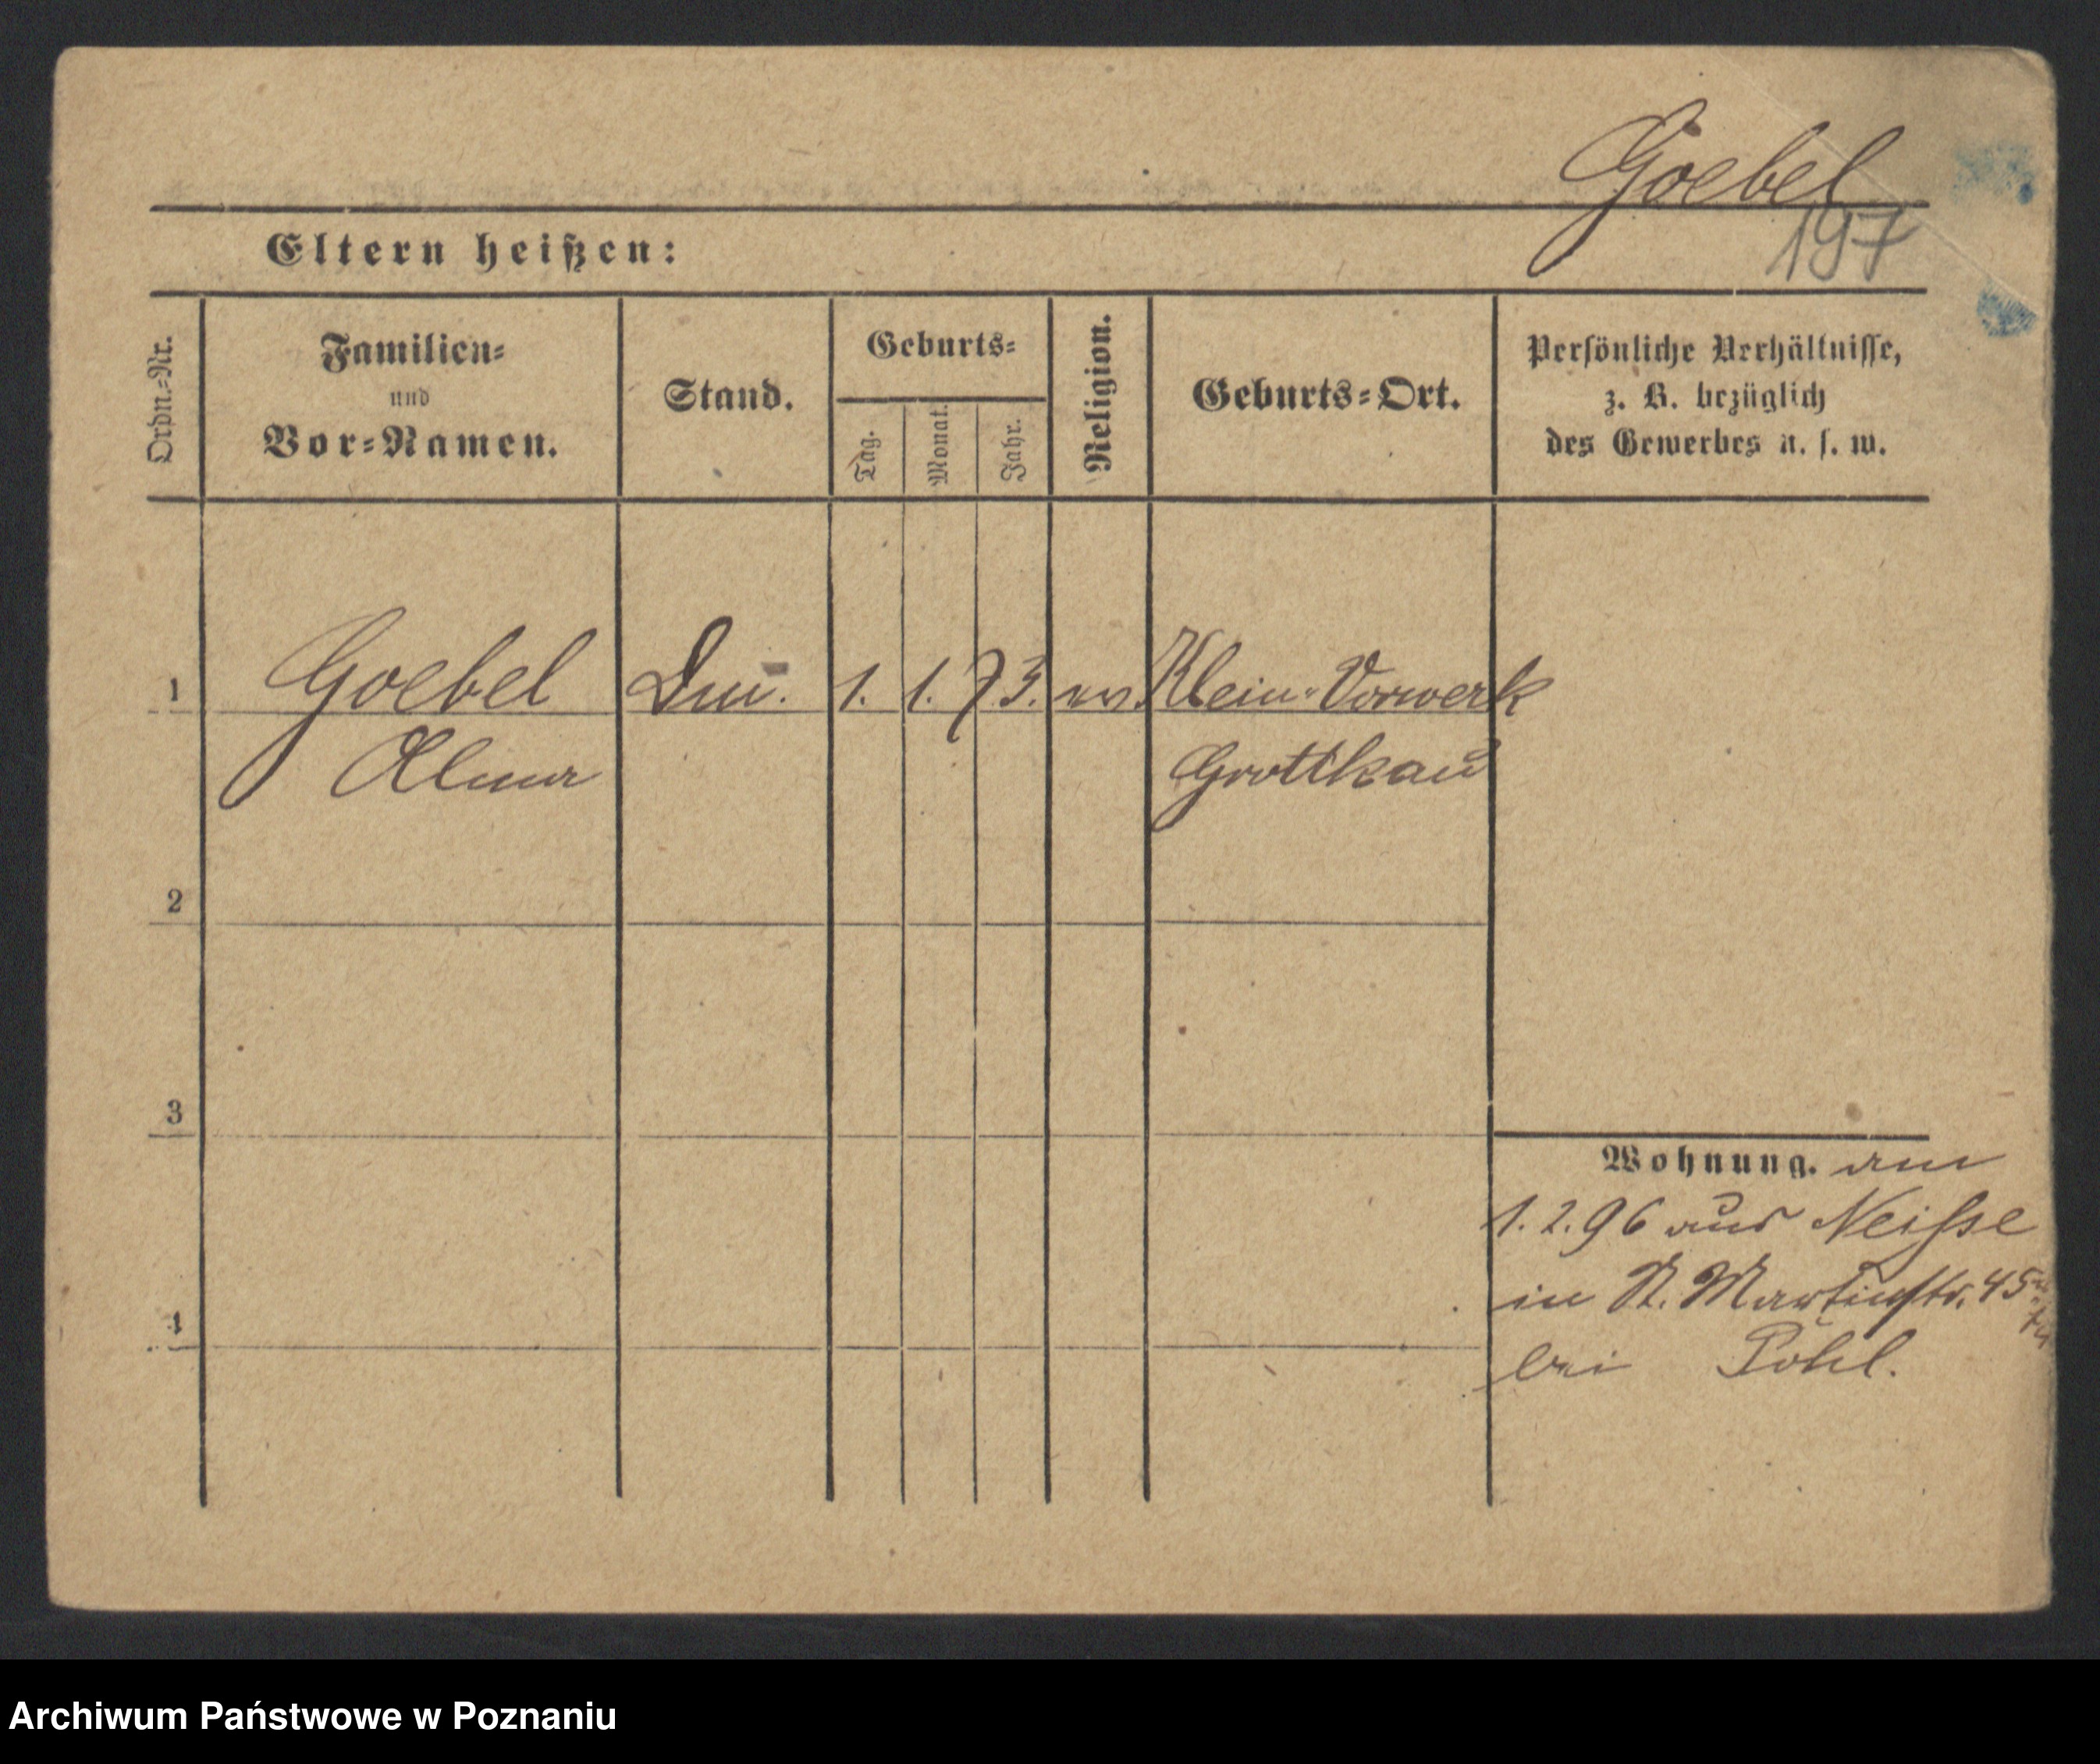 Goebel
197
Eltern heißen:
Ordn.=Nr.
Familien=
und
Vor=Namen.
Stand.
Geburts=
Tag.
Monat.
Jahr.
Religion.
Geburts=Ort.
Persönliche Verhältnisse,
z. B. bezüglich
des Gewerbes u. s. w.
1 Goebel 1. 1. 73. ev. Klein-Vorwerk
Grottkau
2
3
4
Wohnung. am
1. 2. 96 aus Neisse
in St. Martinstr. 45
bei Pohl.
Archiwum Państwowe w Poznaniu